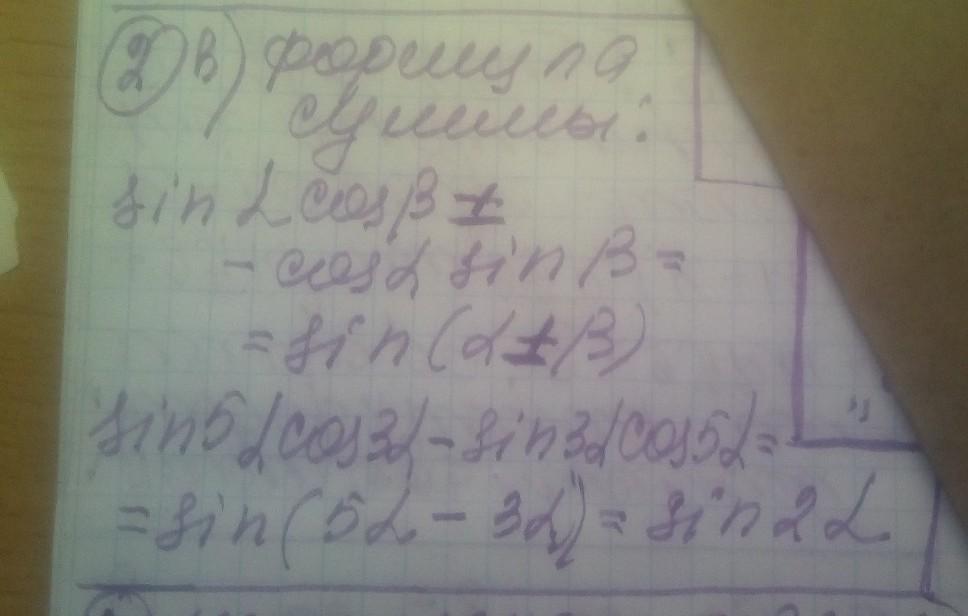 2 в) формула
суммы:
sin α cos β ±
- cos α sin β =
= sin (α ± β)
sin 5α cos 3α - sin 3α cos 5α =
= sin (5α - 3α) = sin 2α